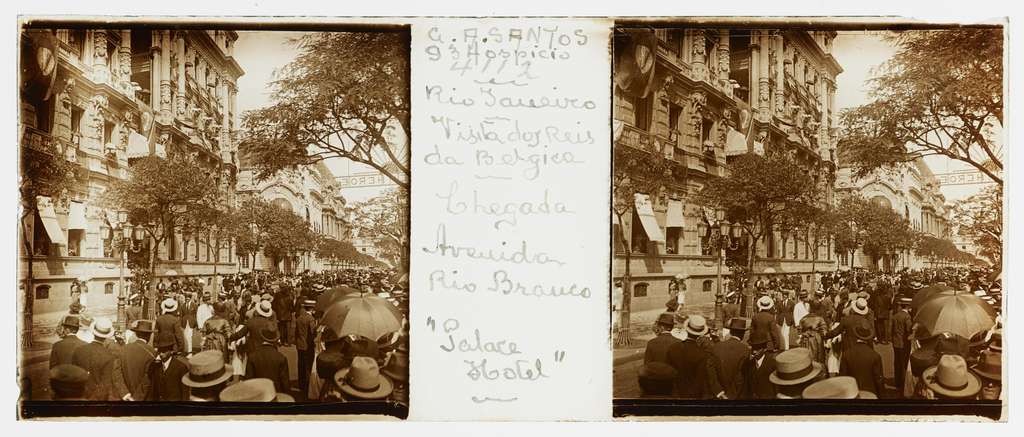 G. A. SANTOS
93 Hospicio
Rio Janeiro
Vista dos Reis
da Belgica
Chegada
Avenida
Rio Branco
"Palace
Hotel"